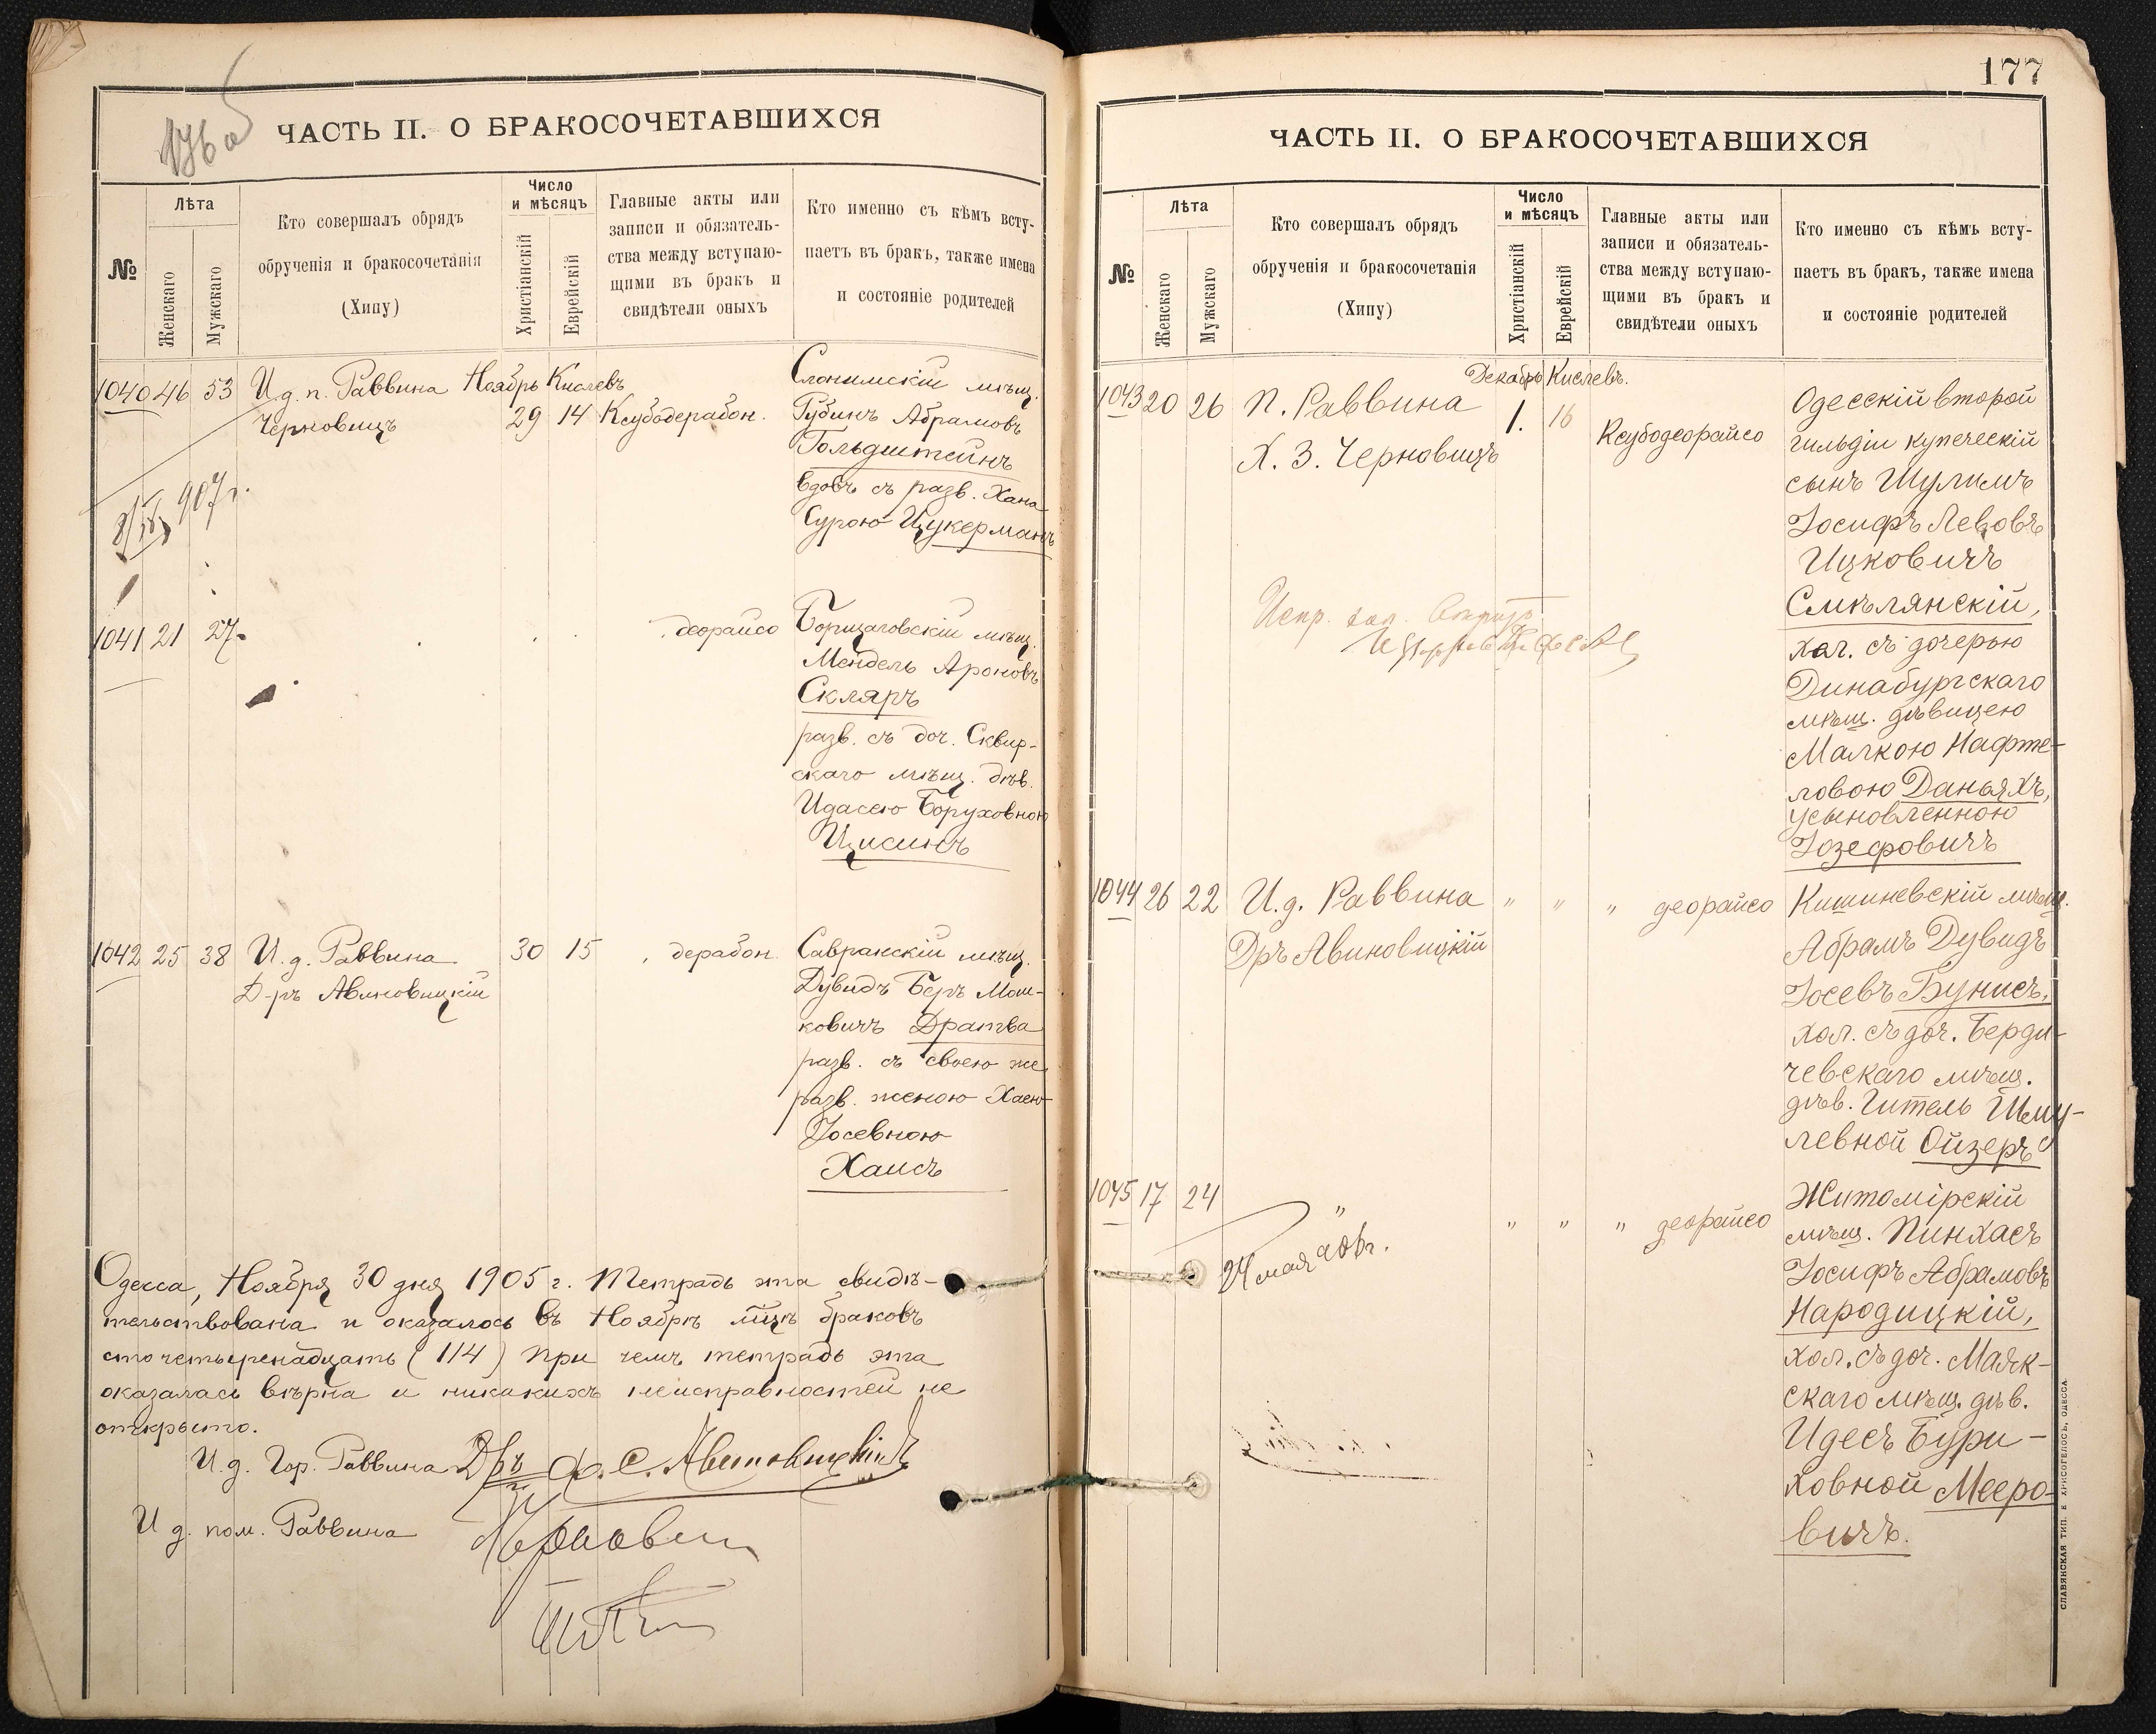 ЧАСТЬ II. О БРАКОСОЧЕТАВШИХСЯ
№
Лѣта
Женскаго
Мужскаго
Кто совершалъ обрядъ
обрученія и бракосочетанія
(Хипу)
Число
и мѣсяцъ
Христіанскій
Еврейскій
Главные акты или
записи и обязатель-
ства между вступаю-
щими въ бракъ и
свидѣтели оныхъ
Кто именно съ кѣмъ всту-
паетъ въ бракъ, также имена
и состояніе родителей
1040 46 53 И. д. п. Раввина Ноябрь Кислевъ
Черновицъ 29 14 Ксубодерабон.
Слонимскій мѣщ.
Губинъ Абрамовъ
Гольдштейнъ
вдовъ съ разв. Хана
Сурою Цукерманъ
907 г.
1041 21 27 деорайсо
Борщаговскій мѣщ.
Мендель Ароновъ
Скляръ
разв. съ доч. Сквир-
скаго мѣщ. дѣв.
Идасею Боруховною
Цисинъ
1042 25 38 И. д. Раввина 30 15 дерабон.
Д-ръ Авиновицкій
Савранскій мѣщ.
Дувидъ Беръ Мош-
ковичъ Дратва
разв. съ своею же
разв. женою Хаею
Іосевною
Хаисъ
Одесса, Ноября 30 дня 1905 г. Тетрадь эта свидѣ-
тельствована и оказалось въ Ноябрѣ мцѣ браковъ
сто четыренадцать (114) при чемъ тетрадь эта
оказалась вѣрна и никакихъ неисправностей не
открыто.
И. д. Гор. Раввина Дръ
И д. пом. Раввина
177
ЧАСТЬ II. О БРАКОСОЧЕТАВШИХСЯ
№
Лѣта
Женскаго
Мужскаго
Кто совершалъ обрядъ
обрученія и бракосочетанія
(Хипу)
Число
и мѣсяцъ
Христіанскій
Еврейскій
Главные акты или
записи и обязатель-
ства между вступаю-
щими въ бракъ и
свидѣтели оныхъ
Кто именно съ кѣмъ всту-
паетъ въ бракъ, также имена
и состояніе родителей
Декабрь Кислевъ.
1043 20 26 П. Раввина 1. 16 Ксубодеорайсо
Х. З. Черновицъ
Одесскій второй
гильдіи купеческій
сынъ Шулимъ
Іосифъ Лейбовъ
Ицковичъ
Смѣлянскій,
хол. съ дочерью
Динабургскаго
мѣщ. дѣвицею
Малкою Нафте-
ловою Даньяхъ,
усыновленною
Іозефовичъ
1044 26 22 И. д. Раввина " " " деорайсо
Дръ Авиновицкій
Кишиневскій мѣщ.
Абрамъ Дувидъ
Іосевъ Бунисъ,
хол. съ доч. Берди-
чевскаго мѣщ.
дѣв. Гитель Шму-
левной Ойзеръ
1045 17 24 " " " " деорайсо
24 мая 906 г.
Житомірскій
мѣщ. Пинхасъ
Іосифъ Абрамовъ
Народицкій,
хол. съ доч. Маяк-
скаго мѣщ. дѣв.
Идесъ Бури-
ховной Мееро-
вичъ.
СЛАВЯНСКАЯ ТИП. Е ХРИСОГЕЛОСЪ, ОДЕССА